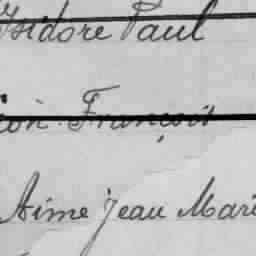 Isidore Paul
François
Aime Jean Mari